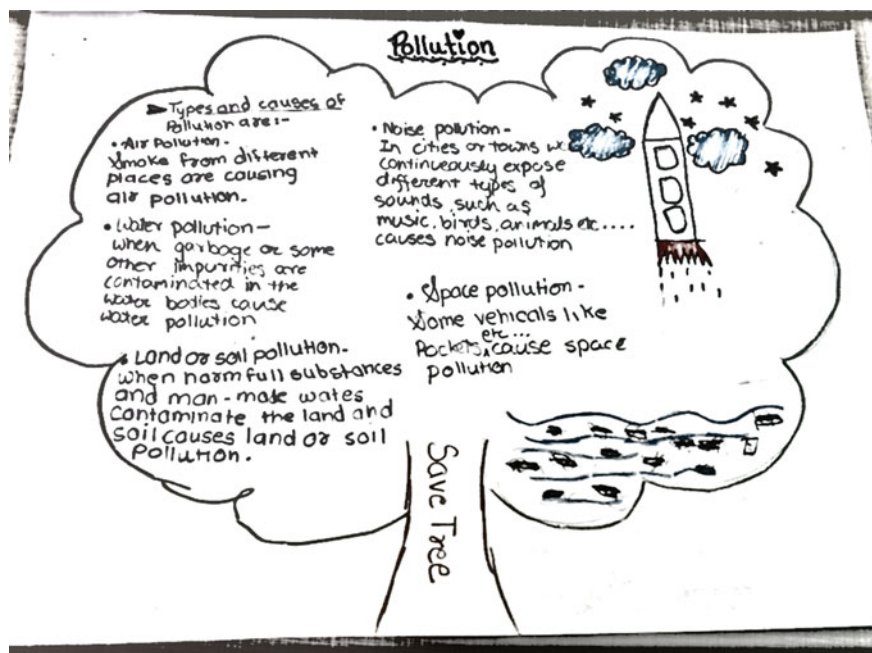 Pollution
Types and causes of
Pollution are:-
• Air Pollution-
Smoke from different
places are causing
air pollution.
• Water pollution-
when garbage or some
other impurities are
contaminated in the
water bodies cause
water pollution
• Land or soil pollution-
when harmfull substances
and man-made wates
contaminate the land and
soil causes land or soil
Pollution.
• Noise pollution-
In cities or towns we
continueously expose
different types of
sounds such as
music, birds, animals etc....
causes noise pollution
• Space pollution-
Some vehicals like
Rockets, etc... cause space
pollution
Save Tree